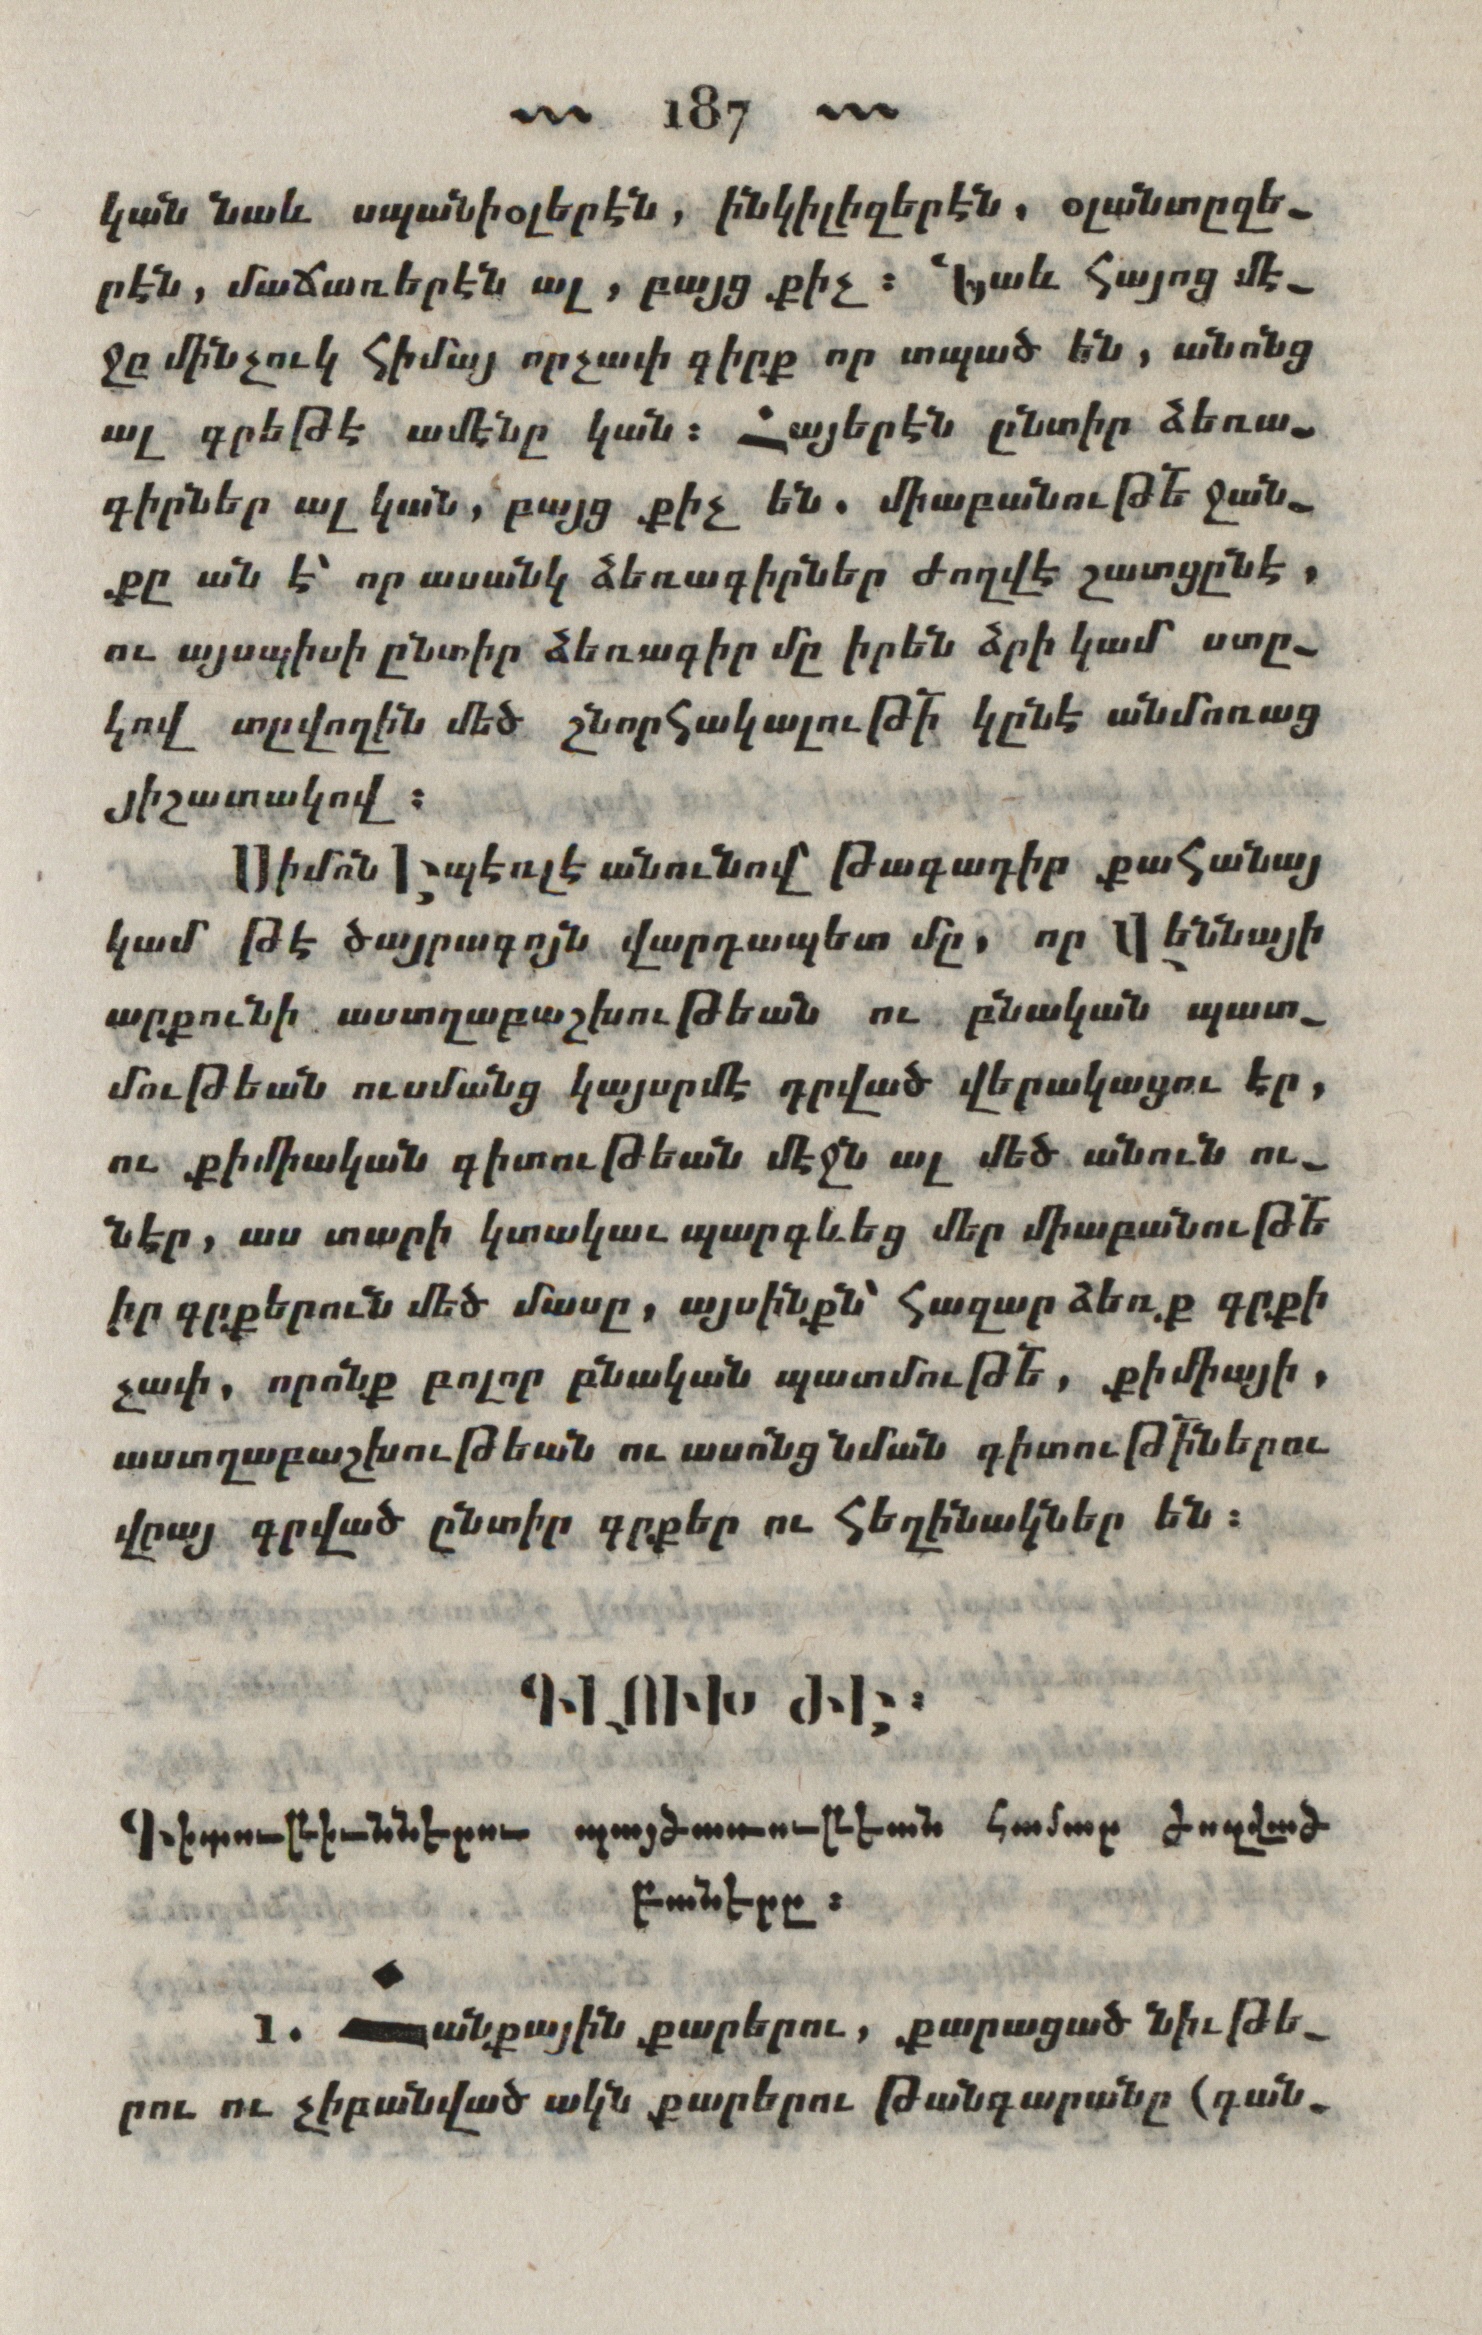 187
կան նաև սպանիօլերէն, ինկիլիզերէն. օլանտըզե֊
րէն, մաճառերէն ալ, բայց քիչ: Նաև Հայոց մէ֊
ջը մինչուկ հիմայ որչափ գիրք որ տպած են, անոնց
ալ գրեթէ ամէնը կան: Հայերէն ընտիր ձեռա֊
գիրներ ալ կան, բայց քիչ են. միաբանութե՟ ջան֊
քը ան է՝ որ ասանկ ձեռագիրներ ժողվէ շատցընէ,
ու այսպիսի ընտիր ձեռագիր մը իրեն ձրի կամ ստը֊
կով տըվողին մեծ շնորհակալութի՟ կընէ անմոռաց
յիշատակով:
Սիմոն Էպէռլէ անունով թագադիր քահանայ
կամ թէ ծայրագոյն վարդապետ մը, որ Վեննայի
արքունի աստղաբաշխութեան ու բնական պատ֊
մութեան ուսմանց կայսրմէ դրված վերակացու էր,
ու քիմիական գիտութեան մէջն ալ մեծ անուն ու֊
նէր, աս տարի կտակաւ պարգևեց մեր միաբանութե՟
իր գրքերուն մեծ մասը, այսինքն՝ հազար ձեռք գրքի
չափ, որոնք բոլոր բնական պատմութե՟, քիմիայի,
աստղաբաշխութեան ու ասոնց նման գիտութի՟ներու
վրայ գրված ընտիր գրքեր ու հեղինակներ են:
ԳԼՈՒԽ ԺԷ:
Գիտութիւններու պայծառութեան համար ժողված
բաները:
1. Հանքային քարերու, քարացած նիւթե֊
րու ու չիբանված ակն քարերու թանգարանը (դան֊